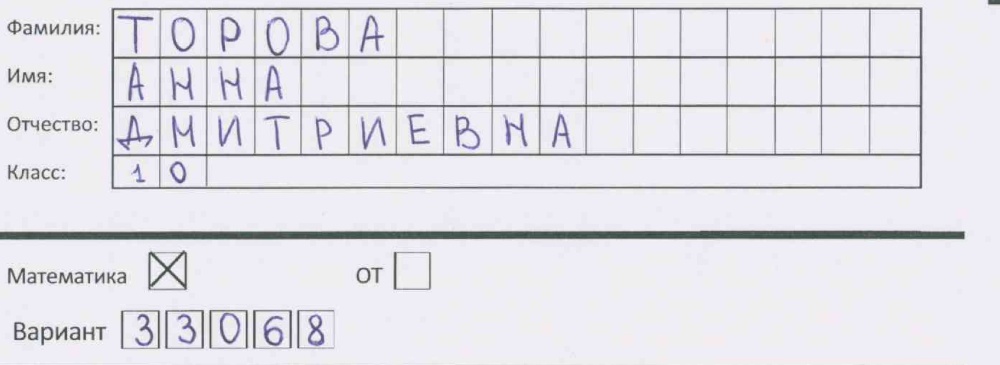 Фамилия: ТОРОВА
Имя: АННА
Отчество: ДМИТРИЕВНА
Класс: 10
Математика ☒ ОТ ☐
Вариант 33068